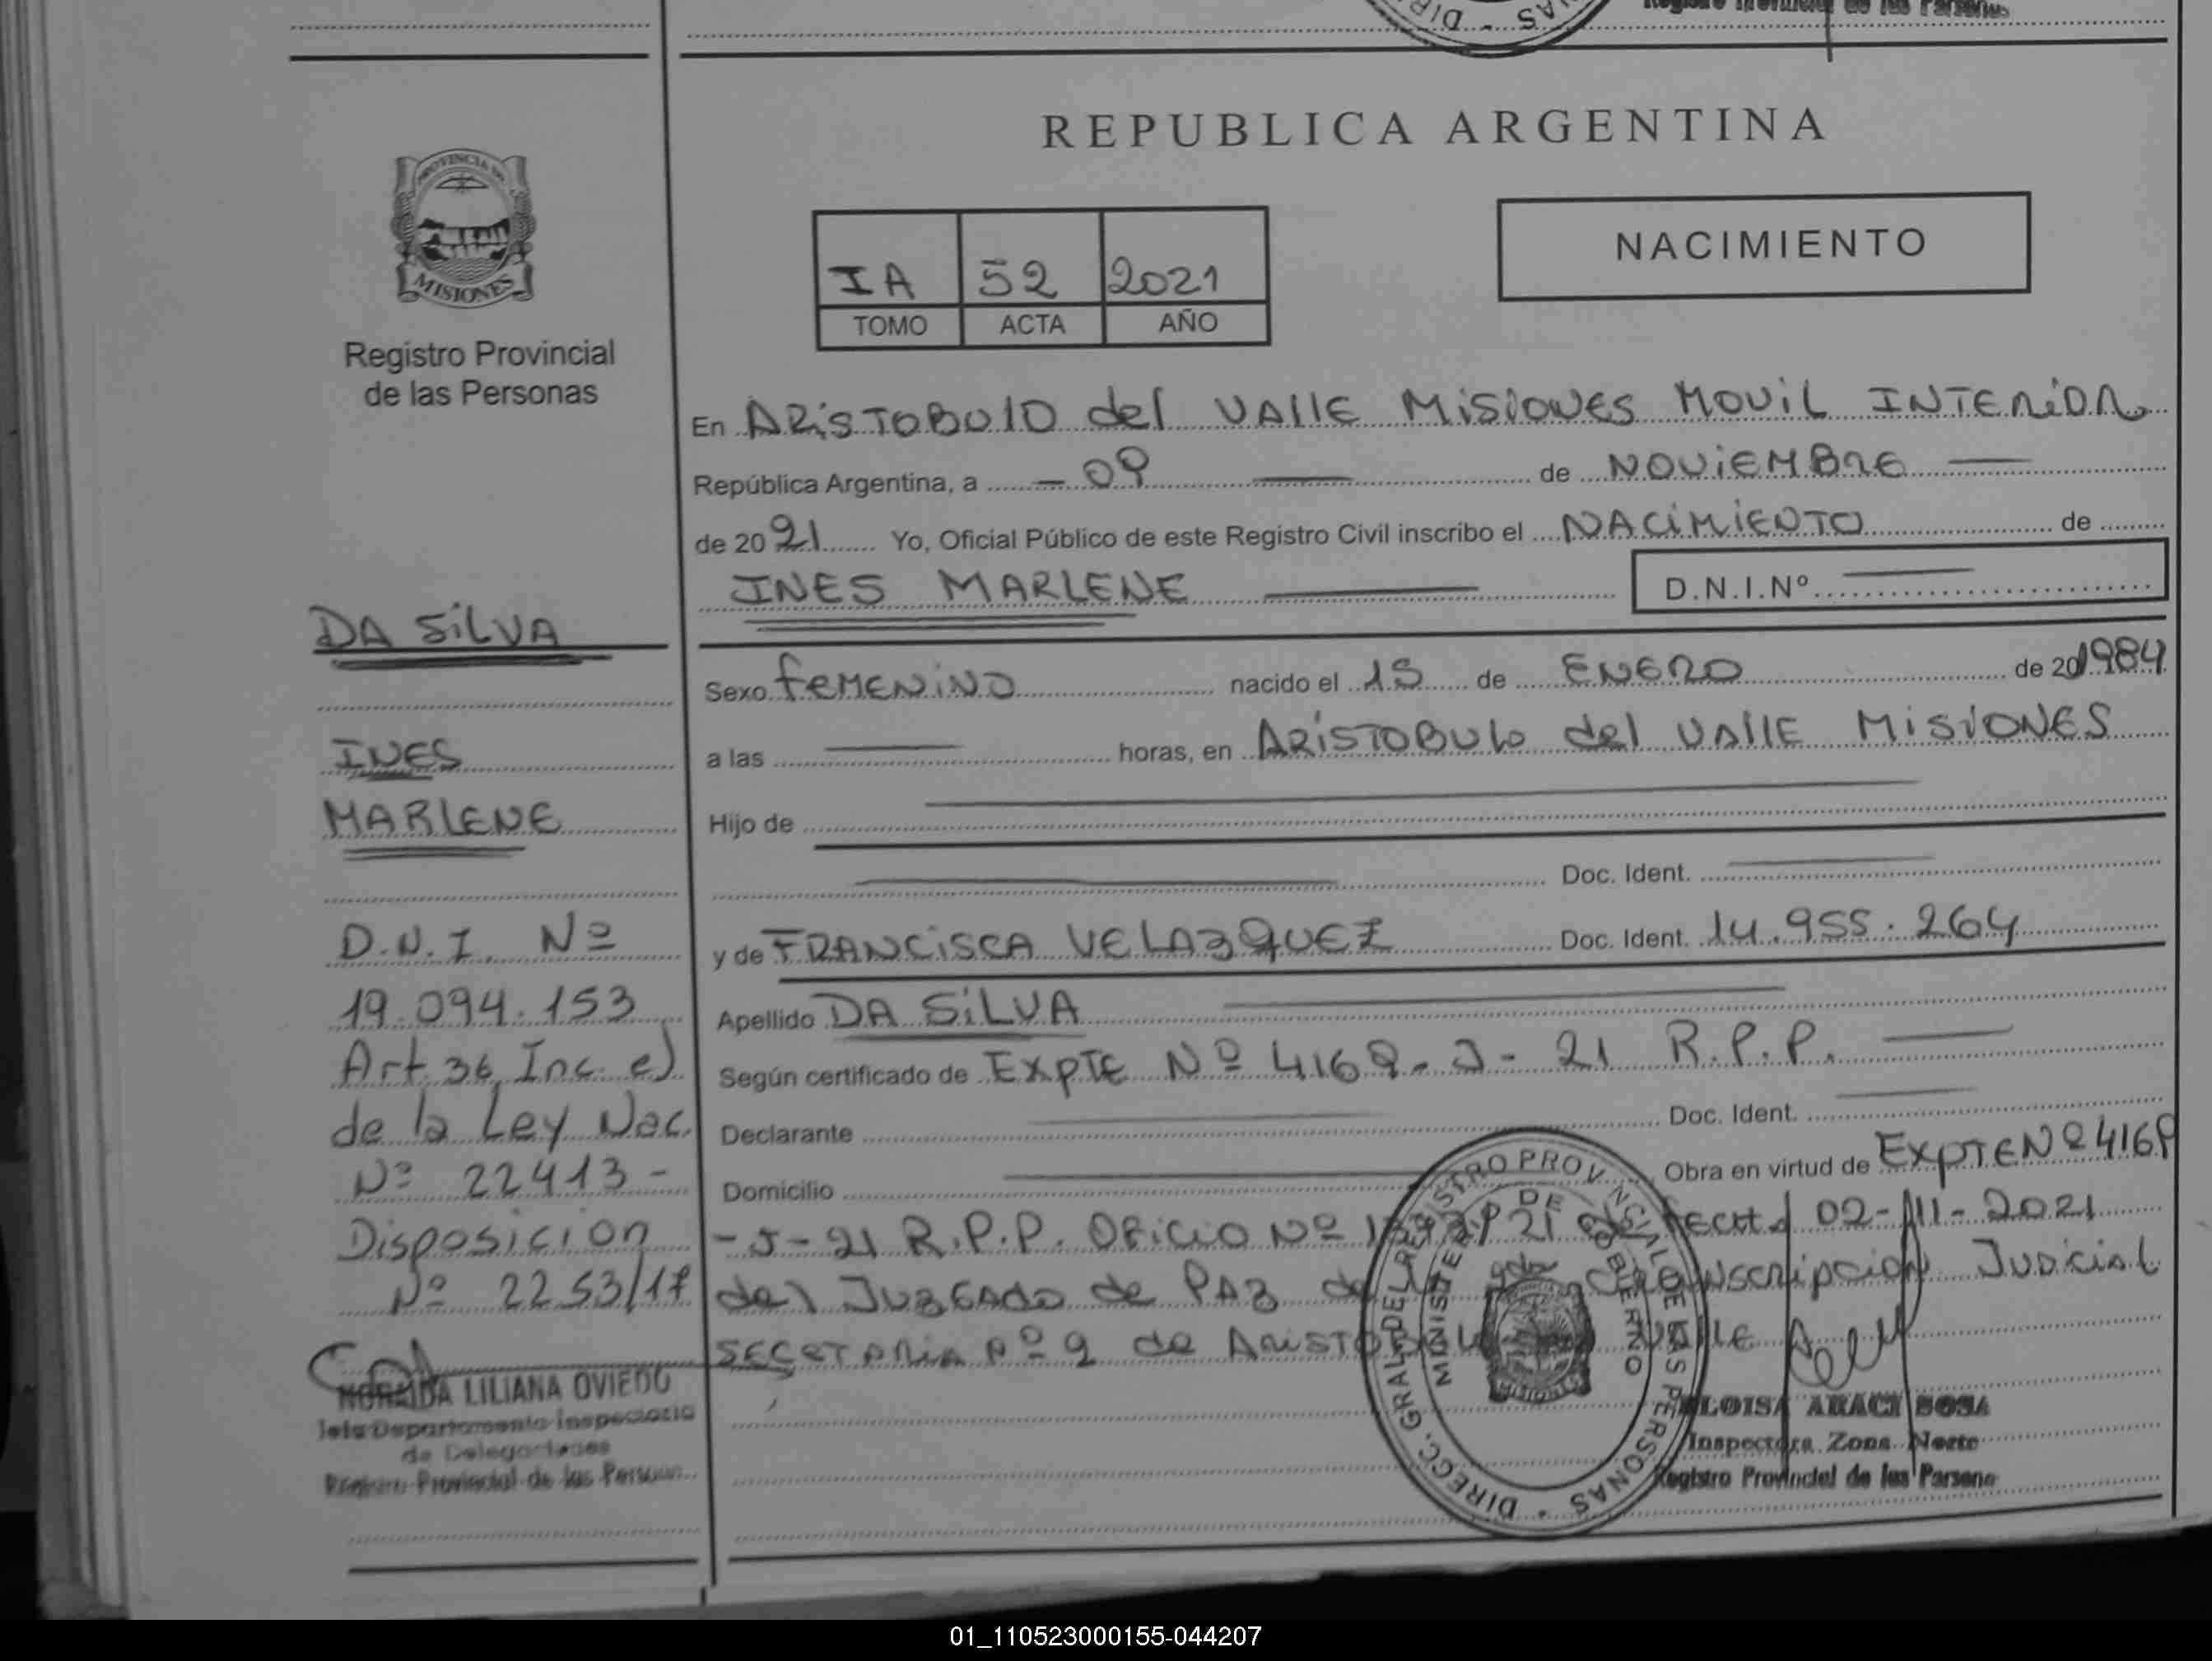 DIR - SAN
Registro Provincial de las Personas
PROVINCIA DE
MISIONES
Registro Provincial
de las Personas
REPUBLICA ARGENTINA
NACIMIENTO
IA 52 2021
TOMO ACTA AÑO
En ARISTOBULO del VALLE MISIONES MOVIL INTERIOR
República Argentina, a - 09 — de NOVIEMBRE —
de 2021 Yo, Oficial Público de este Registro Civil inscribo el NACIMIENTO de
INES MARLENE — D.N.I.Nº —
DA SILVA
INES
MARLENE
D.N.I. Nº
19.094.153
Art. 36, Inc. e)
de la Ley Nac.
Nº 22413 -
Disposicion
Nº 2253/17
LILIANA OVIEDO
Jefa Departamento Inspectoria
de Delegaciones
Registro Provincial de las Personas
Sexo FEMENINO nacido el 15 de ENERO de 201984
a las — horas, en ARISTOBULO del VALLE MISIONES
Hijo de —
— Doc. Ident. —
y de FRANCISCA VELAZQUEZ Doc. Ident. 14.955.264
Apellido DA SILVA —
Según certificado de EXPTE Nº 4169-J-21 R.P.P. —
Declarante — Doc. Ident. —
Domicilio — Obra en virtud de EXPTE Nº 4169
-J-21 R.P.P. OFICIO Nº 21 de FECHA 02-11-2021
del JUZGADO de PAZ de Circunscripcion Judicial
SECRETARIA Nº 2 de ARISTOBULO VALLE
DIRECC. GRAL. DEL REGISTRO PROVINCIAL DE LAS PERSONAS
MINISTERIO DE GOBIERNO
MISIONES
ELOISA ARACI SOSA
Inspectora Zona Norte
Registro Provincial de las Persona
01_110523000155-044207